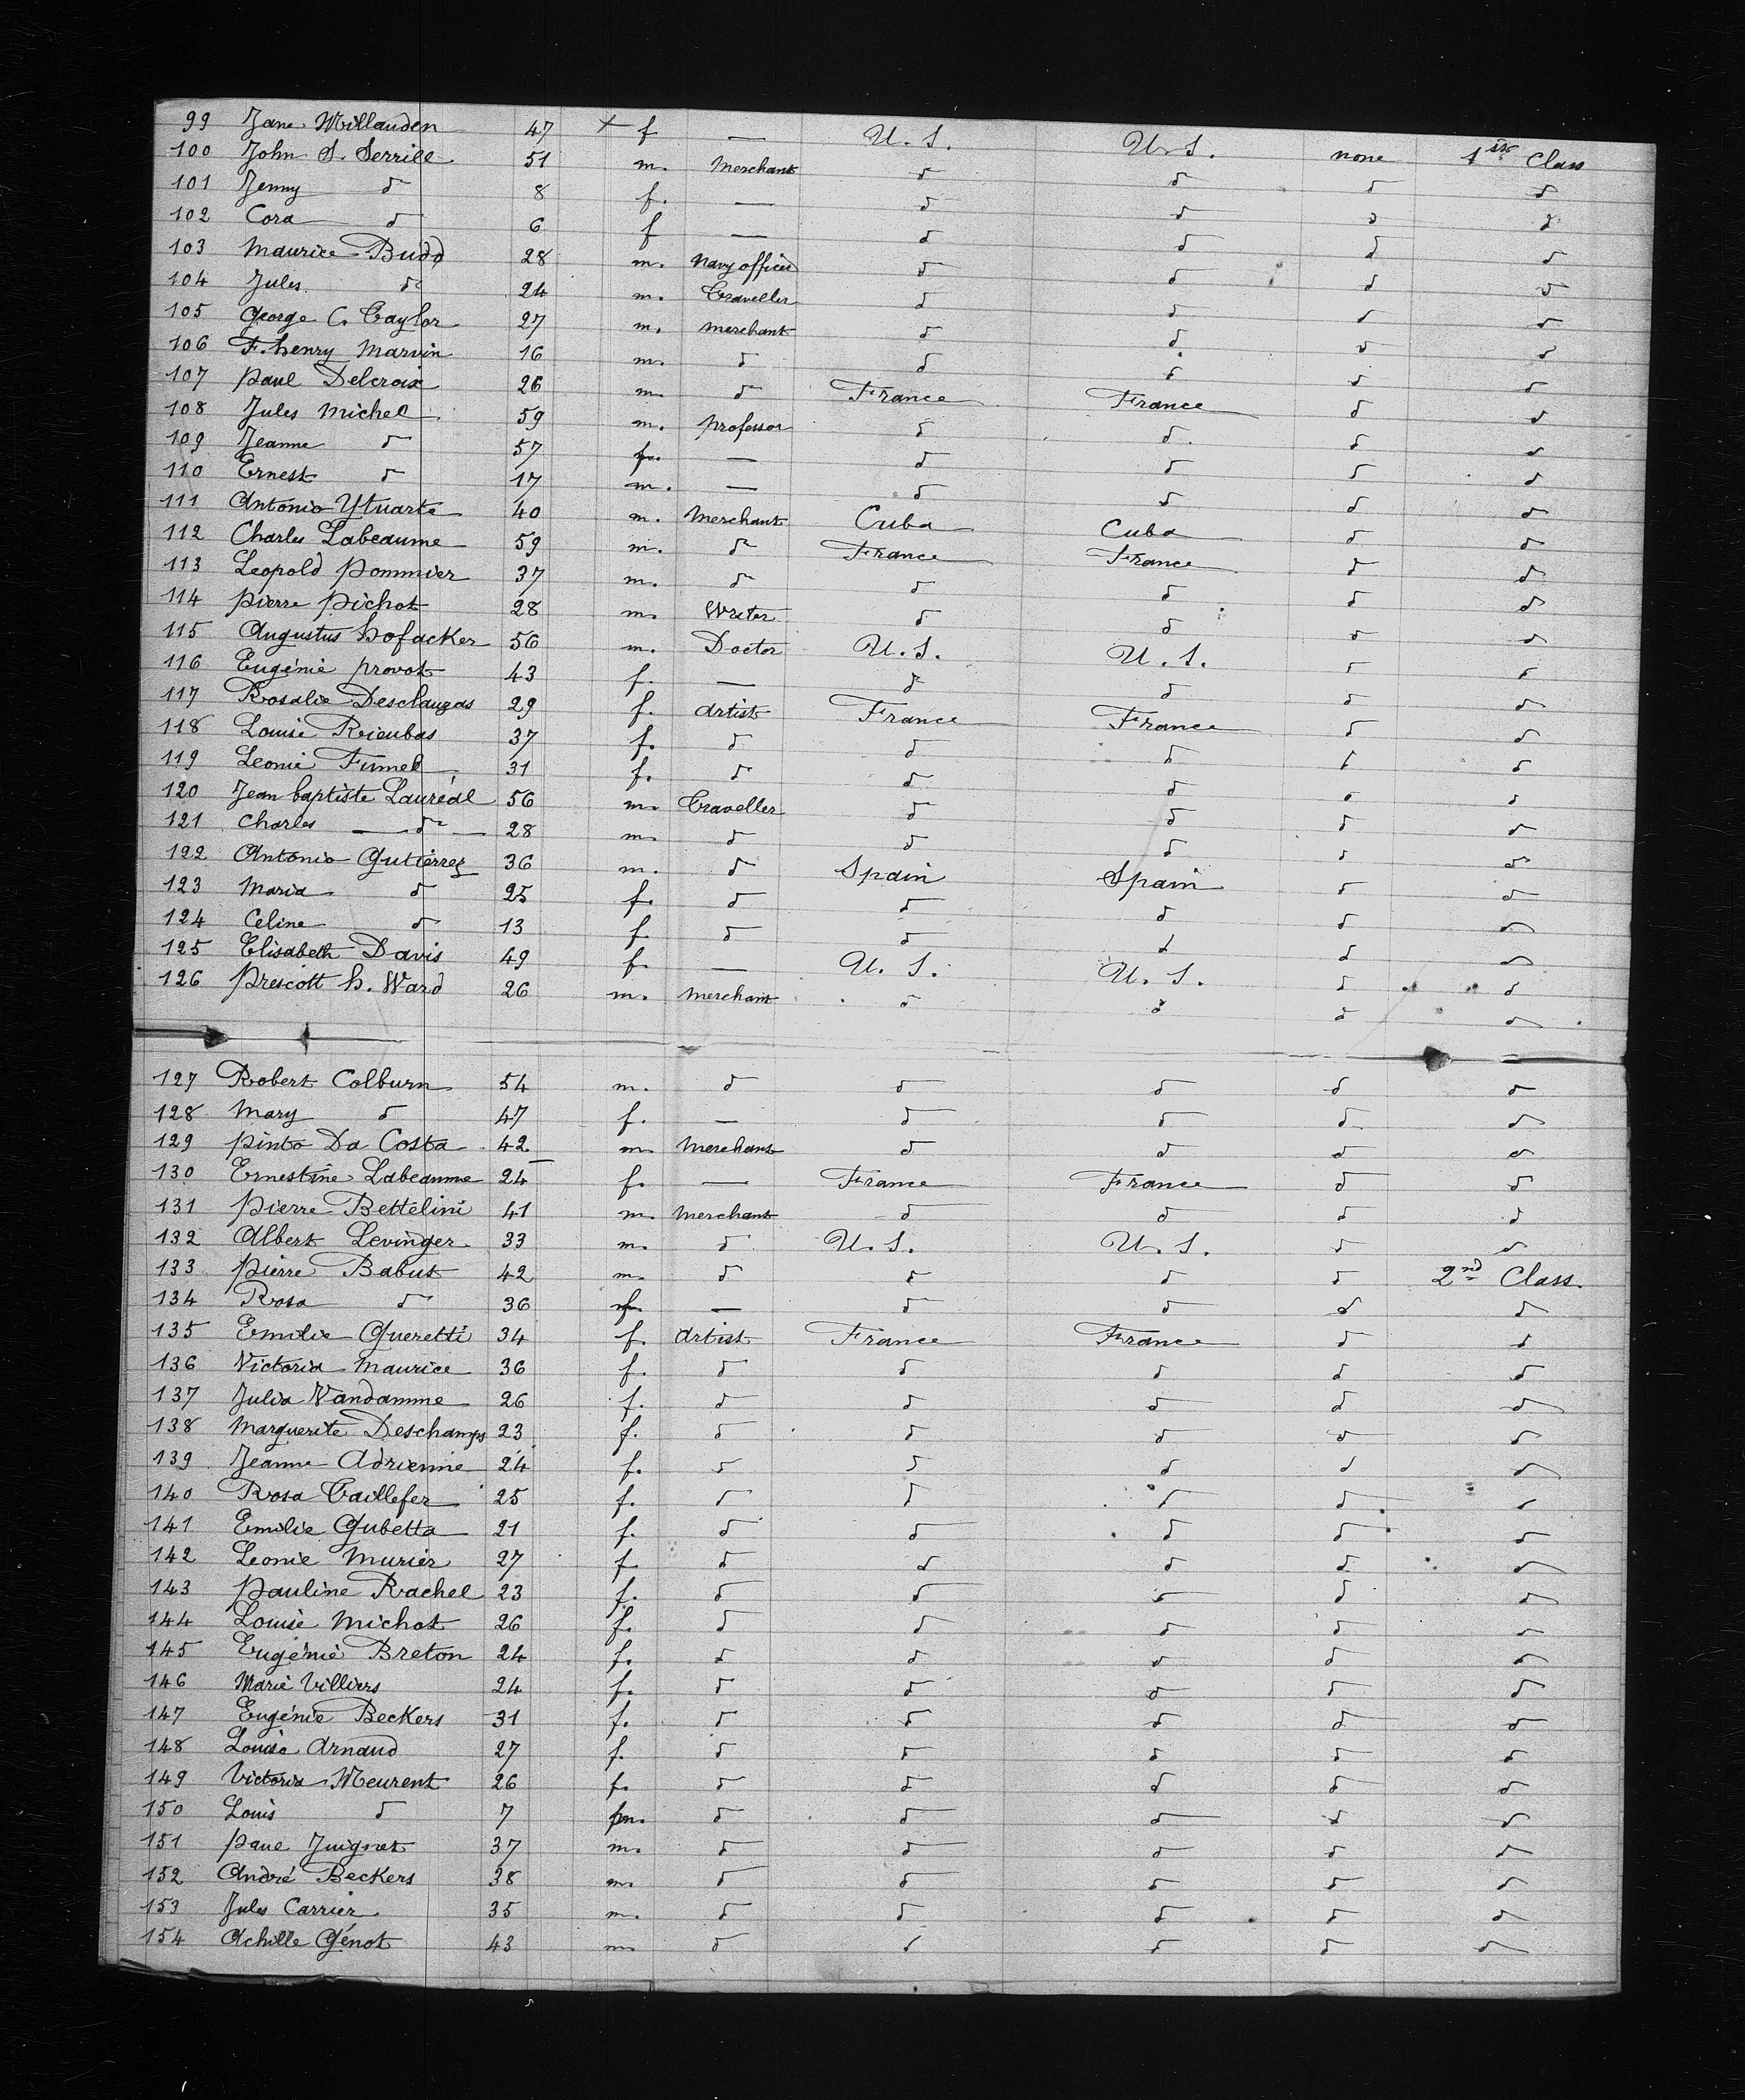 99 Jane Millauden 47 + f — U. S. U. S. none 1st Class
100 John S. Serrill 51 m. Merchant d d d d
101 Jenny d 8 f. — d d d d
102 Cora d 6 f — d d d d
103 Maurice Budd 28 m. Navy officer d d d d
104 Jules d 24 m. Traveller d d d d
105 George C. Taylor 27 m. merchant d d d d
106 F. henry Marvin 16 m. d d d d d
107 Paul Delcroix 26 m. d France France d d
108 Jules Michel 59 m. professor d d d d
109 Jeanne d 57 f. — d d d d
110 Ernest d 17 m. — d d d d
111 Antonio Ytuarte 40 m. Merchant Cuba Cuba d d
112 Charles Labeaume 59 m. d France France d d
113 Leopold Pommier 37 m. d d d d d
114 Pierre Pichot 28 m. Writer d d d d
115 Augustus Hofacker 56 m. Doctor U. S. U. S. d d
116 Eugénie Provot 43 f. — d d d d
117 Rosalie Deschauzas 29 f. artist France France d d
118 Louise Rieubas 37 f. d d d d d
119 Leonie Fumel 31 f. d d d d d
120 Jean baptiste Lauréal 56 m. Traveller d d d d
121 Charles — d — 28 m. d d d d d
122 Antonio Gutiérrez 36 m. d Spain Spain d d
123 Maria d 25 f. d d d d d
124 Celine d 13 f. d d d d d
125 Elisabeth Davis 49 f. — U. S. U. S. d d
126 Prescott h. Ward 26 m. Merchant d d d d
127 Robert Colburn 54 m. d d d d d
128 Mary d 47 f. — d d d d
129 Pinto Da Costa 42 m. Merchant d d d d
130 Ernestine Labeaume 24 f. — France France d d
131 Pierre Bettelini 41 m. Merchant d d d d
132 Albert Levinger 33 m. d U. S. U. S. d d
133 Pierre Babut 42 m. d d d d 2nd Class.
134 Rosa d 36 f. — d d d d
135 Emilie Gueretti 34 f. artist France France d d
136 Victoria Maurice 36 f. d d d d d
137 Julia Vandamme 26 f. d d d d d
138 Marguerite Deschamps 23 f. d d d d d
139 Jeanne Adrienne 24 f. d d d d d
140 Rosa Taillefer 25 f. d d d d d
141 Emilie Gubetta 21 f. d d d d d
142 Leonie Murier 27 f. d d d d d
143 Pauline Rachel 23 f. d d d d d
144 Louise Michot 26 f. d d d d d
145 Eugénie Breton 24 f. d d d d d
146 Marie Villiers 24 f. d d d d d
147 Eugénie Beckers 31 f. d d d d d
148 Louise Arnaud 27 f. d d d d d
149 Victoria Meurent 26 f. d d d d d
150 Louis d 7 m. d d d d d
151 Paul Juignet 37 m. d d d d d
152 André Beckers 38 m. d d d d d
153 Jules Carrier 35 m. d d d d d
154 Achille Génot 43 m. d d d d d